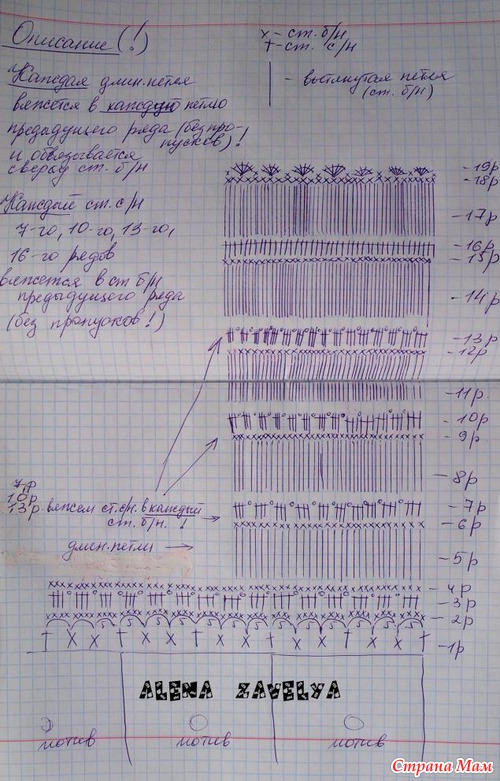 Описание (!)
x - ст. б/н
† - ст. с/н
| - вытянутая петля
(ст. б/н)
Каждая длин. петля
вяжется в каждую петлю
предыдущего ряда (без про-
пусков)!
и обвязывается
сверху ст. б/н
Каждый ст. с/н
7-го, 10-го, 13-го,
16-го рядов
вяжется в ст б/н
предыдущего ряда
(без пропусков!)
-19р
-18р
-17р
-16р
-15р
-14р
-13р
-12р
-11р.
-10р
-9р
-8р
-7р
-6р
-5р
-4р
-3р
-2р
-1р
7р
10р
13р вяжем ст. с/н. в каждый
ст. б/н. !
длин. петли
5 5 5 5 5 5 5 5 5 5 5 5
ALENA ZAVELYA
мотив мотив мотив
Страна Мам